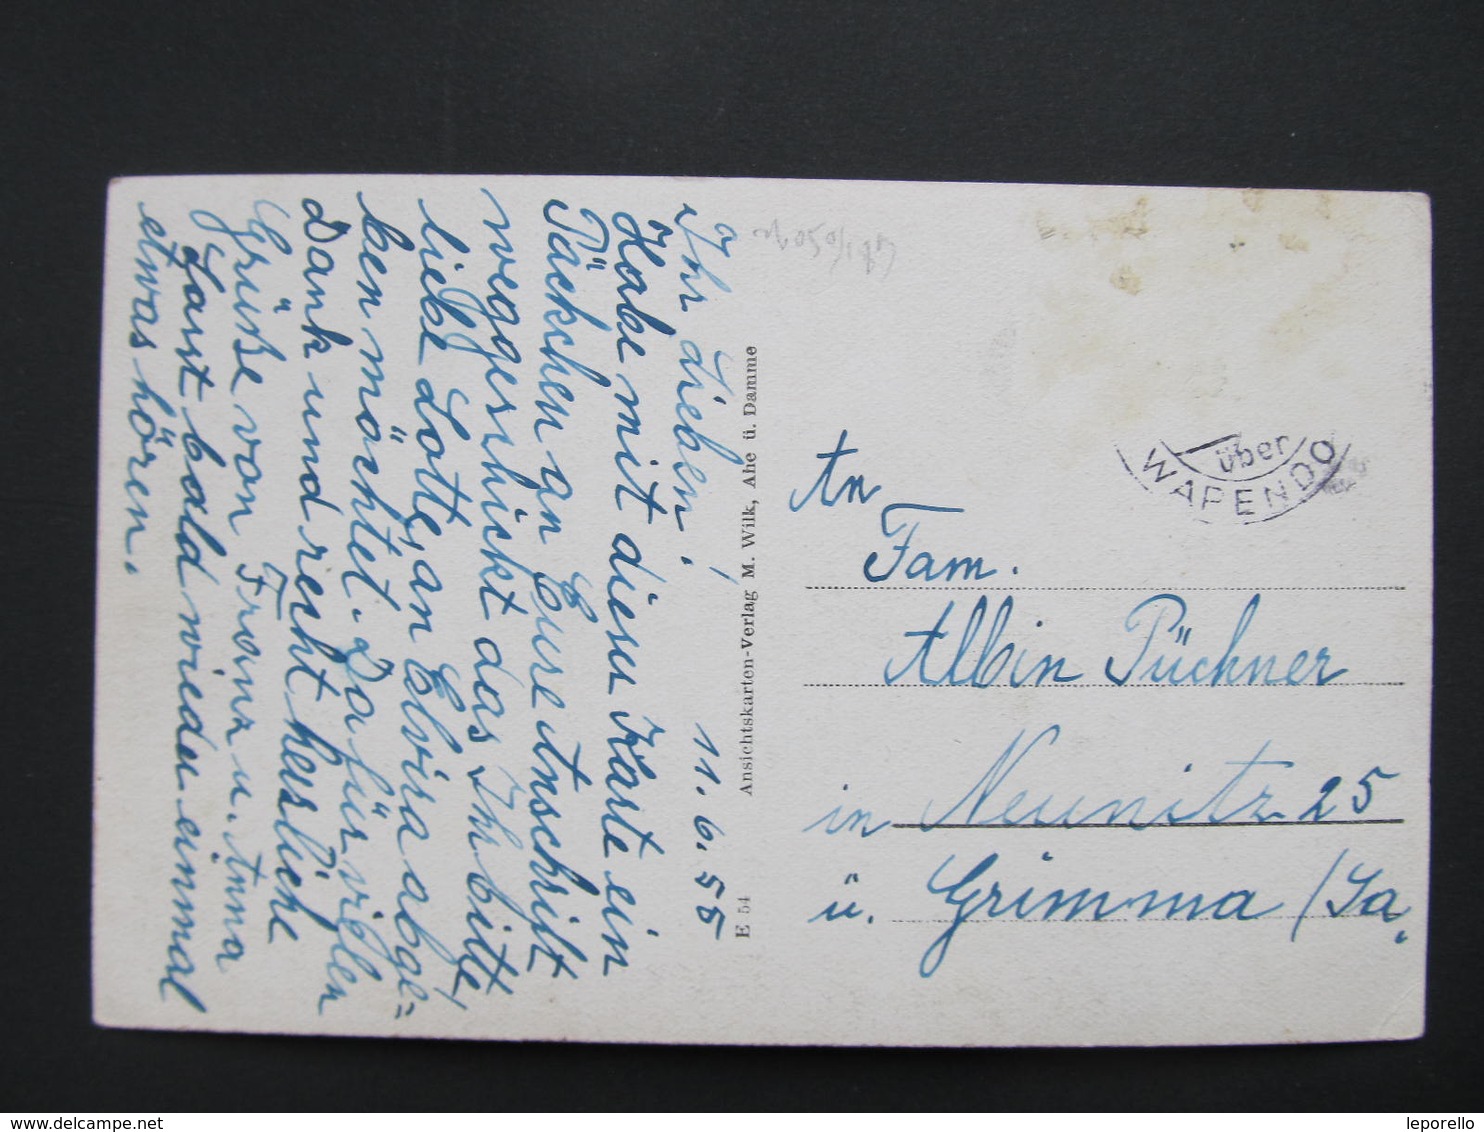 11. 6. 55
Ihr Lieben!
Habe mit diesen Karte ein
Päckchen an Eure Anschrift
weggeschickt das Ihr bitte,
liebe Lotte, an Elvira abge=
ben möchtet. Dafür vielen
Dank und recht herzliche
Grüße von Franz u. Anna
Lasst bald wieder einmal
etwas hören.
E 54 Ansichtskarten-Verlag M. Wilk, Ahe ü. Damme
über
WAPENDO
An
Fam.
Albin Püchner
in Neunitz 25
ü. Grimma /Sa.
delcampe.net
leporello